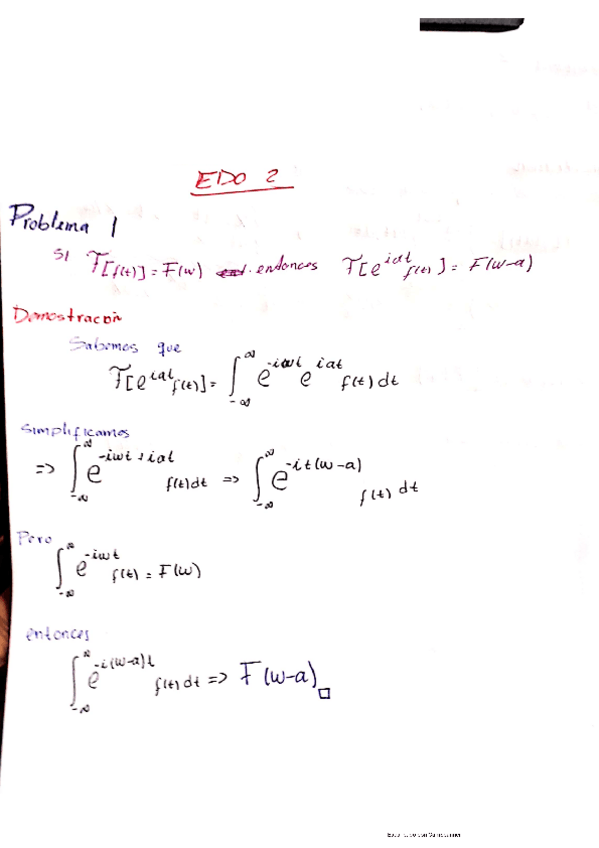 EDO 2
Problema 1
Si 𝓕[f(t)] = F(w) entonces 𝓕[e^{iat} f(t)] = F(w-a)
Demostracón
Sabemos que
𝓕[e^{iat} f(t)] = ∫_{-∞}^{∞} e^{-iwt} e^{iat} f(t) dt
Simplificamos
=> ∫_{-∞}^{∞} e^{-iwt+iat} f(t) dt => ∫_{-∞}^{∞} e^{-it(w-a)} f(t) dt
Pero
∫_{-∞}^{∞} e^{-iwt} f(t) = F(w)
entonces
∫_{-∞}^{∞} e^{-i(w-a)t} f(t) dt => F(w-a) □